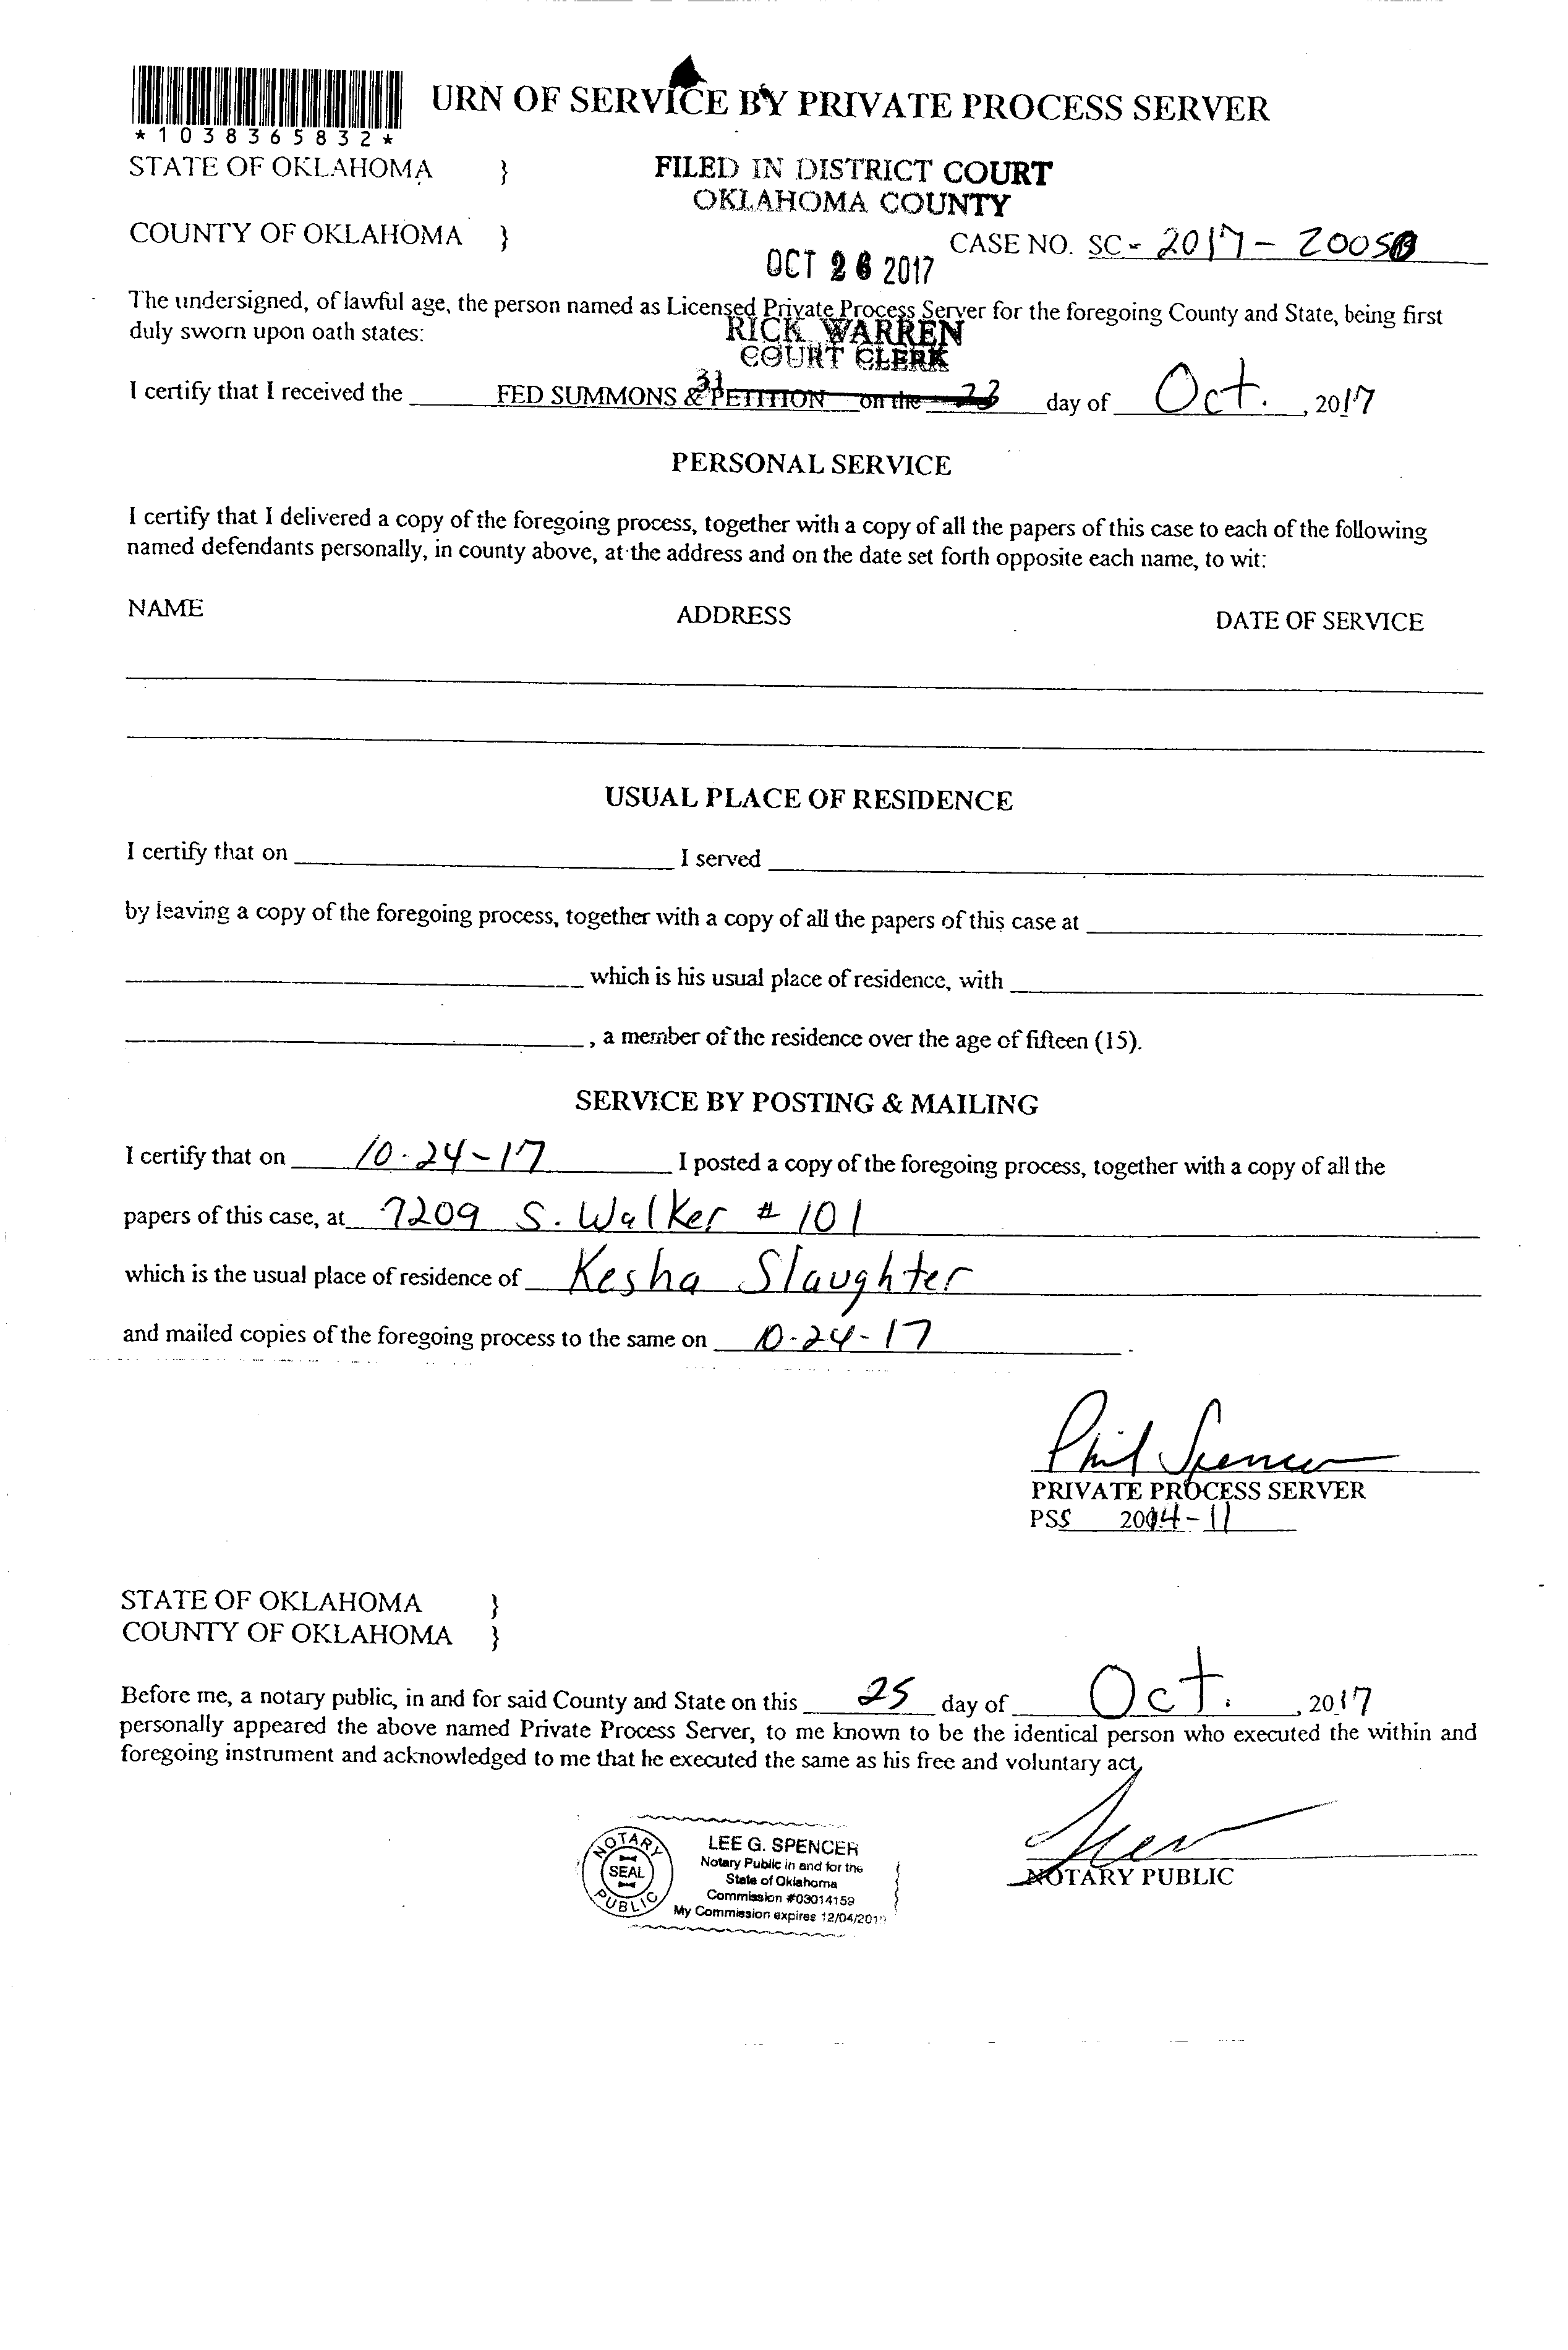 URN OF SERVICE BY PRIVATE PROCESS SERVER
*1038365832*
STATE OF OKLAHOMA }
FILED IN DISTRICT COURT
OKLAHOMA COUNTY
COUNTY OF OKLAHOMA }
CASE NO. SC - 2017 - 2005
OCT 26 2017
The undersigned, of lawful age, the person named as Licensed Private Process Server for the foregoing County and State, being first
duly sworn upon oath states:
RICK WARREN
COURT CLERK
31
I certify that I received the FED SUMMONS & PETITION on the 23 day of Oct. , 2017
PERSONAL SERVICE
I certify that I delivered a copy of the foregoing process, together with a copy of all the papers of this case to each of the following
named defendants personally, in county above, at the address and on the date set forth opposite each name, to wit:
NAME ADDRESS DATE OF SERVICE
USUAL PLACE OF RESIDENCE
I certify that on I served
by leaving a copy of the foregoing process, together with a copy of all the papers of this case at
which is his usual place of residence, with
, a member of the residence over the age of fifteen (15).
SERVICE BY POSTING & MAILING
I certify that on 10-24-17 I posted a copy of the foregoing process, together with a copy of all the
papers of this case, at 7209 S. Walker # 101
which is the usual place of residence of Kesha Slaughter
and mailed copies of the foregoing process to the same on 10-24-17 .
Phil Spencer
PRIVATE PROCESS SERVER
PSS 2014-11
STATE OF OKLAHOMA }
COUNTY OF OKLAHOMA }
Before me, a notary public, in and for said County and State on this 25 day of Oct. , 2017
personally appeared the above named Private Process Server, to me known to be the identical person who executed the within and
foregoing instrument and acknowledged to me that he executed the same as his free and voluntary act.
NOTARY PUBLIC
NOTARY
SEAL
PUBLIC
LEE G. SPENCER
Notary Public in and for the
State of Oklahoma
Commission #03014159
My Commission expires 12/04/201